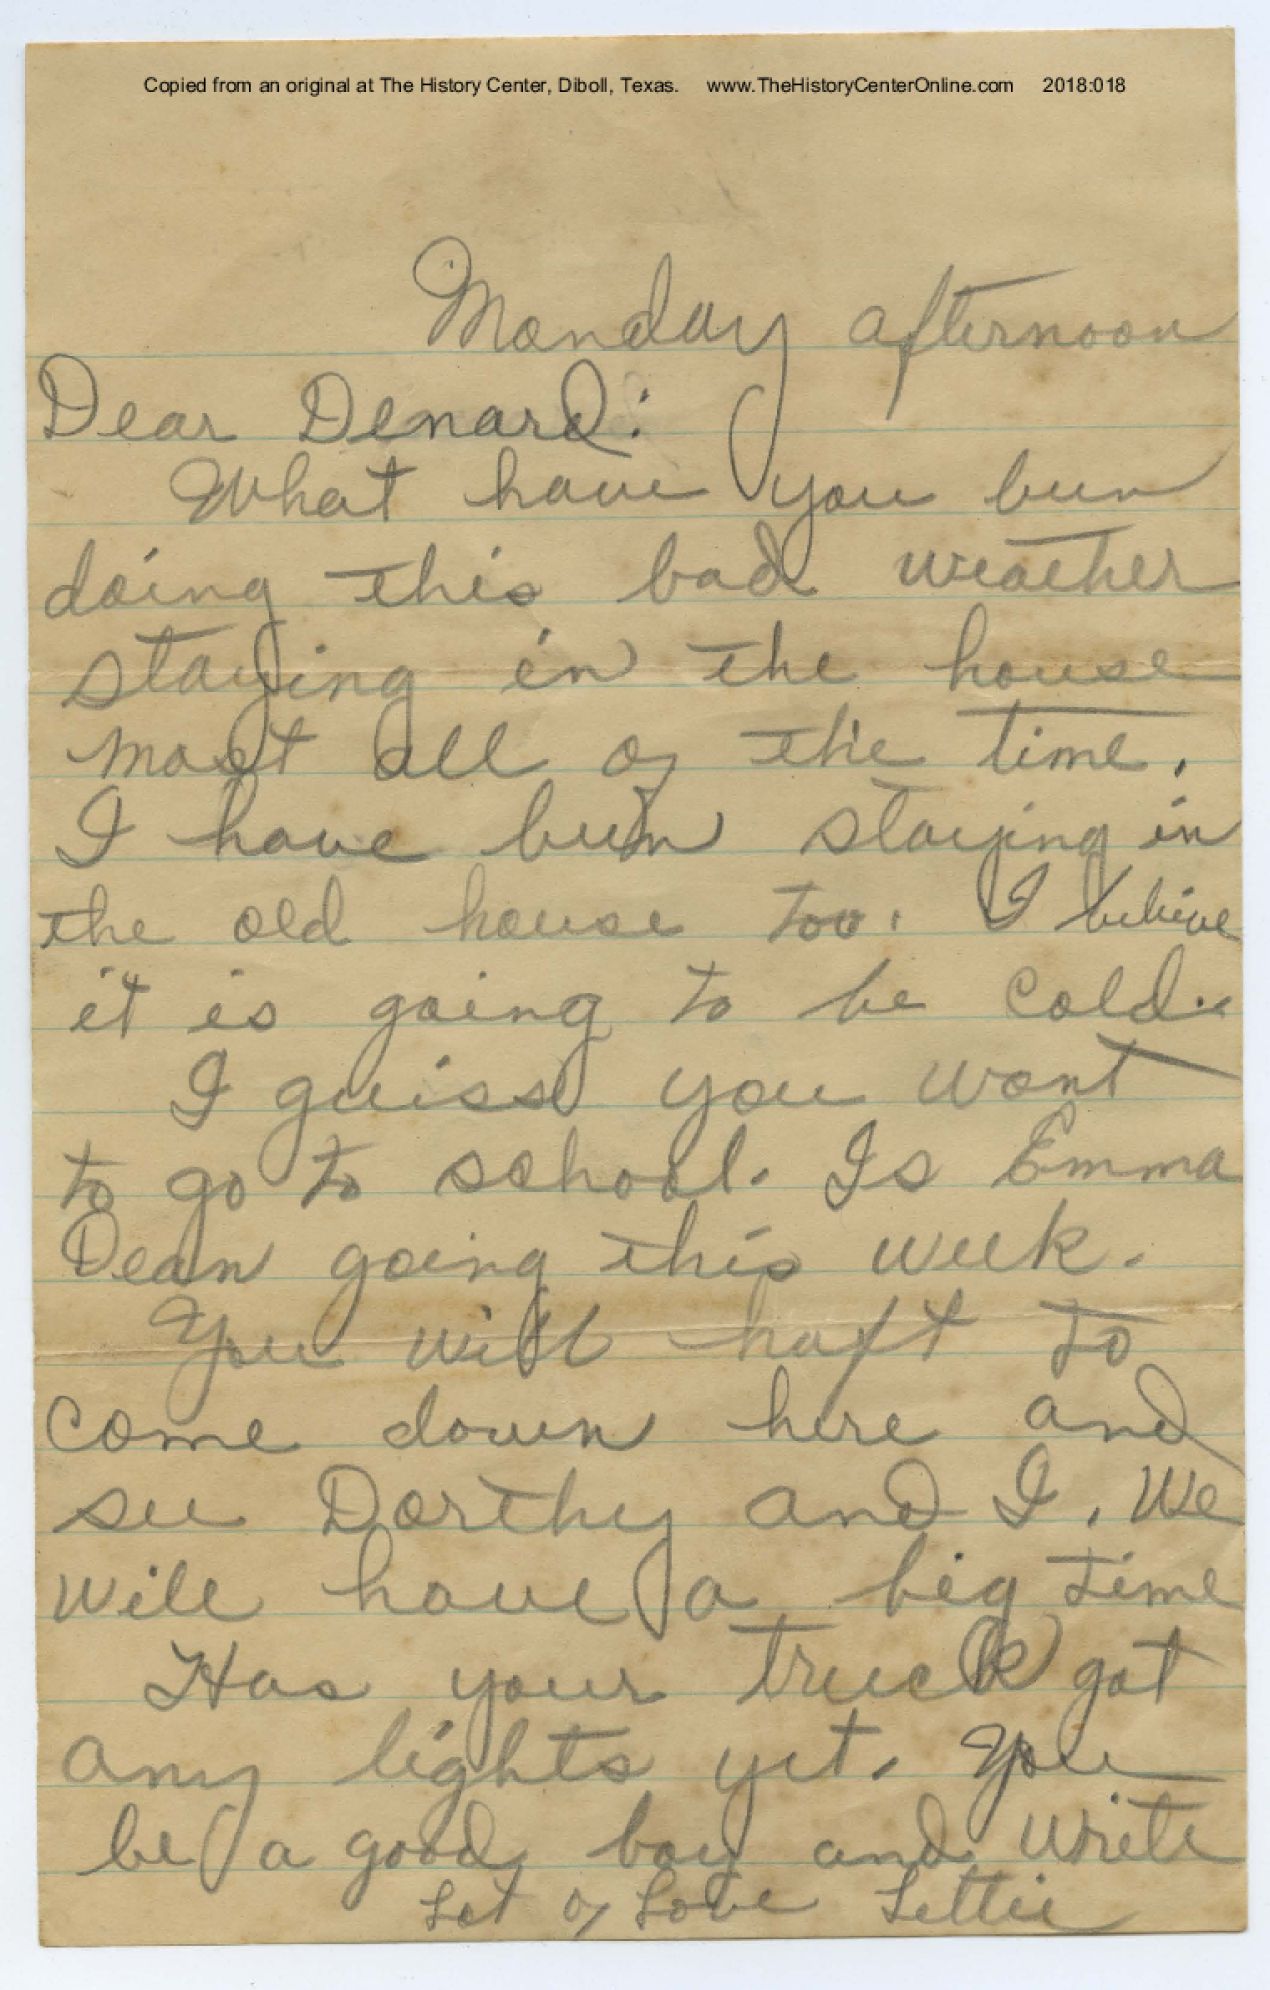 Copied from an original at The History Center, Diboll, Texas. www.TheHistoryCenterOnline.com 2018:018
Monday afternoon
Dear Denard:
What have you been
doing this bad weather
staying in the house
most all of the time.
I have been staying in
the old house too. I believe
it is going to be cold.
I guess you want
to go to school. Is Emma
Dean going this week.
You will haft to
come down here and
see Dorthy and I. We
will have a big time
Has your truck got
any lights yet. You
be a good boy and write
Lot of Love Lettie